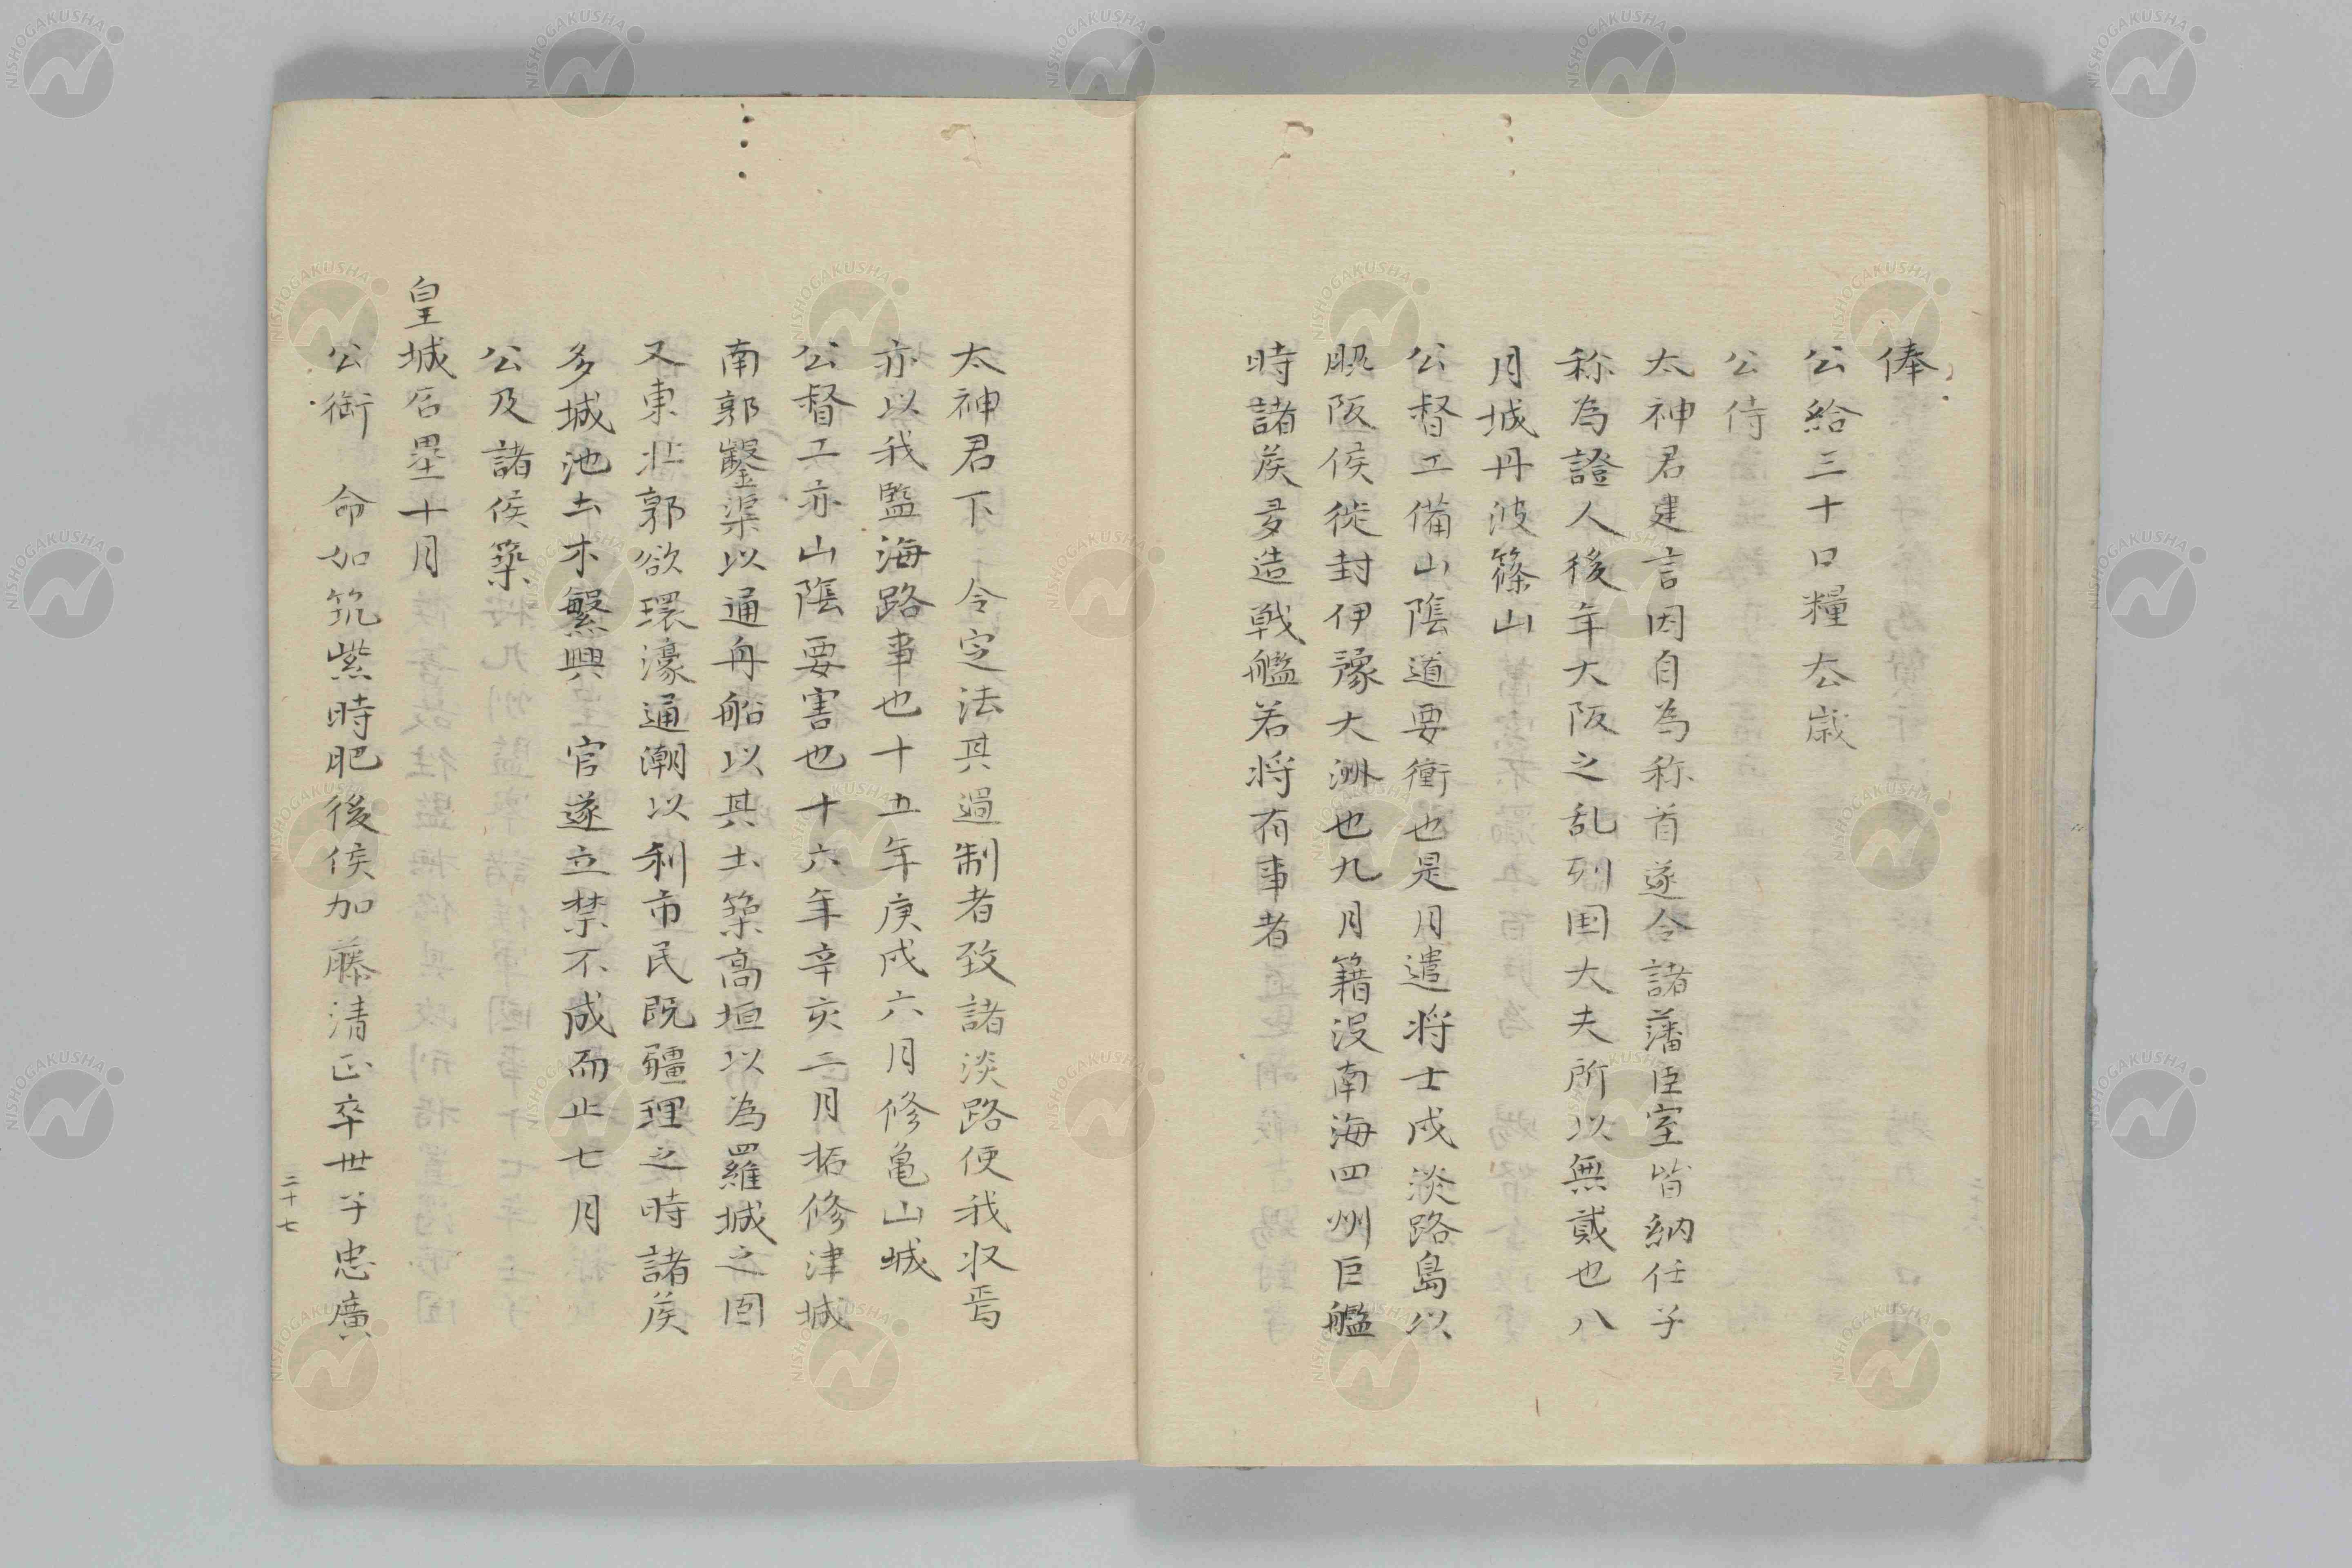 俸
公給三十口糧厺歲
公侍
太神君建言因自為称首遂令諸藩臣室皆納任子
称為證人後年大阪之乱列国大夫所以無貳也八
月城丹波篠山
公督工備山陰道要衝也是月遣将士戍淡路島以
脇阪侯徙封伊豫大洲也九月籍没南海四州巨艦
時諸矦多造戦艦若将有事者
太神君下令定法其過制者致諸淡路使我収焉
亦以我監海路事也十五年庚戌六月修亀山城
公督工亦山陰要害也十六年辛亥二月拓修津城
南郭鑿渠以通舟船以其土築高垣以為羅城之固
又東北郭欲環濠通潮以利市民既疆理之時諸矦
多城池土木繁興官遂立禁不成而止七月
公及諸侯築
皇城石塁十月
公銜命如筑紫時肥後侯加藤清正卒世子忠廣
二十七
NISHOGAKUSHA